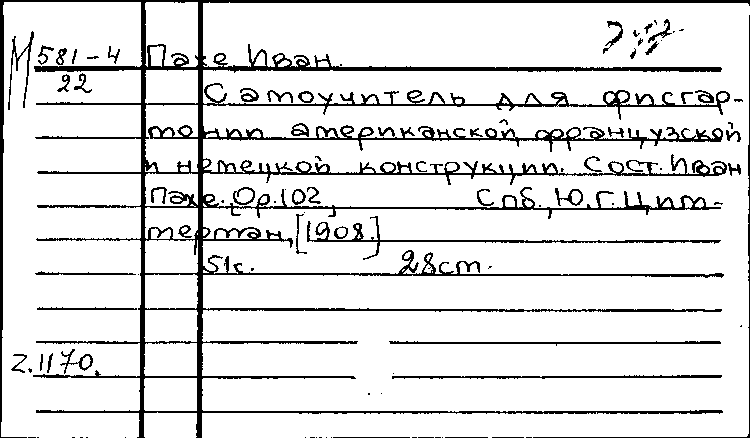 М 581-4 Пахе Иван.
22
Самоучитель для фисгар-
монии американской, французской
и немецкой конструкции. Сост. Иван
Пахе. [Op.102,] Спб., Ю.Г. Цим-
мерман, [1908.]
51с. 28см.
z.1170.